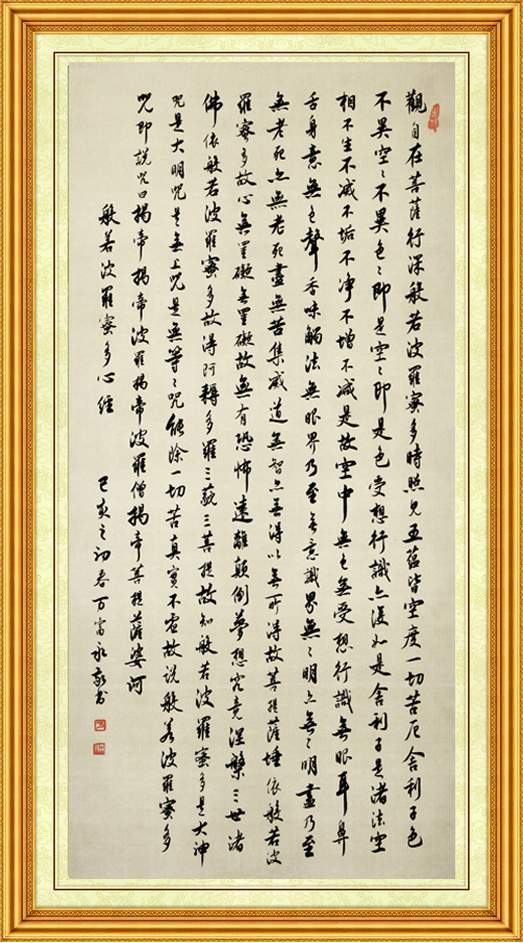 觀自在菩薩行深般若波羅蜜多時照見五蘊皆空度一切苦厄舍利子色
不異空〻不異色〻即是空〻即是色受想行識亦復如是舍利子是諸法空
相不生不滅不垢不净不增不减是故空中無色無受想行識無眼耳鼻
舌身意無色聲香味觸法無眼界乃至無意識界無〻明亦無〻明盡乃至
無老死亦無老死盡無苦集滅道無智亦無得以無所得故菩提薩埵依般若波
羅蜜多故心無罣礙無罣礙故無有恐怖遠離顛倒夢想究竟涅槃三世諸
佛依般若波羅蜜多故得阿耨多羅三藐三菩提故知般若波羅蜜多是大神
咒是大明咒是無上咒是無等〻咒能除一切苦真實不虛故説般若波羅蜜多
咒即説咒曰揭帝揭帝波羅揭帝波羅僧揭帝菩提薩婆訶
般若波羅蜜多心經
己亥之初春万富永敬书